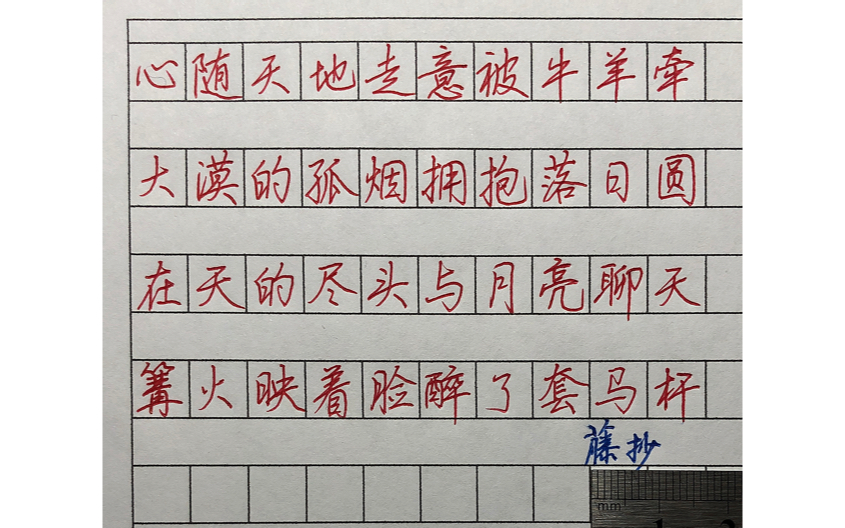 心随天地走意被牛羊牵
大漠的孤烟拥抱落日圆
在天的尽头与月亮聊天
篝火映着脸醉了套马杆
藤抄
mm